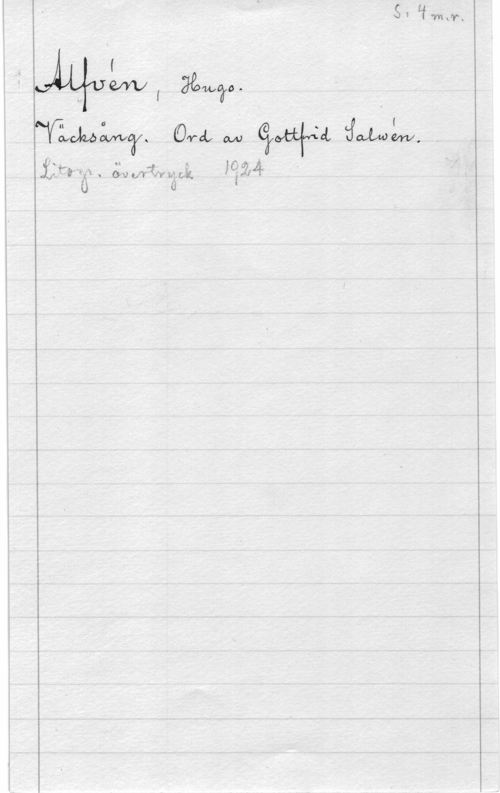 S: 4 m.r.
Alfvén, Hugo.
Väcksång. Ord av Gottfrid Salwén.
Litogr. övertryck 1924